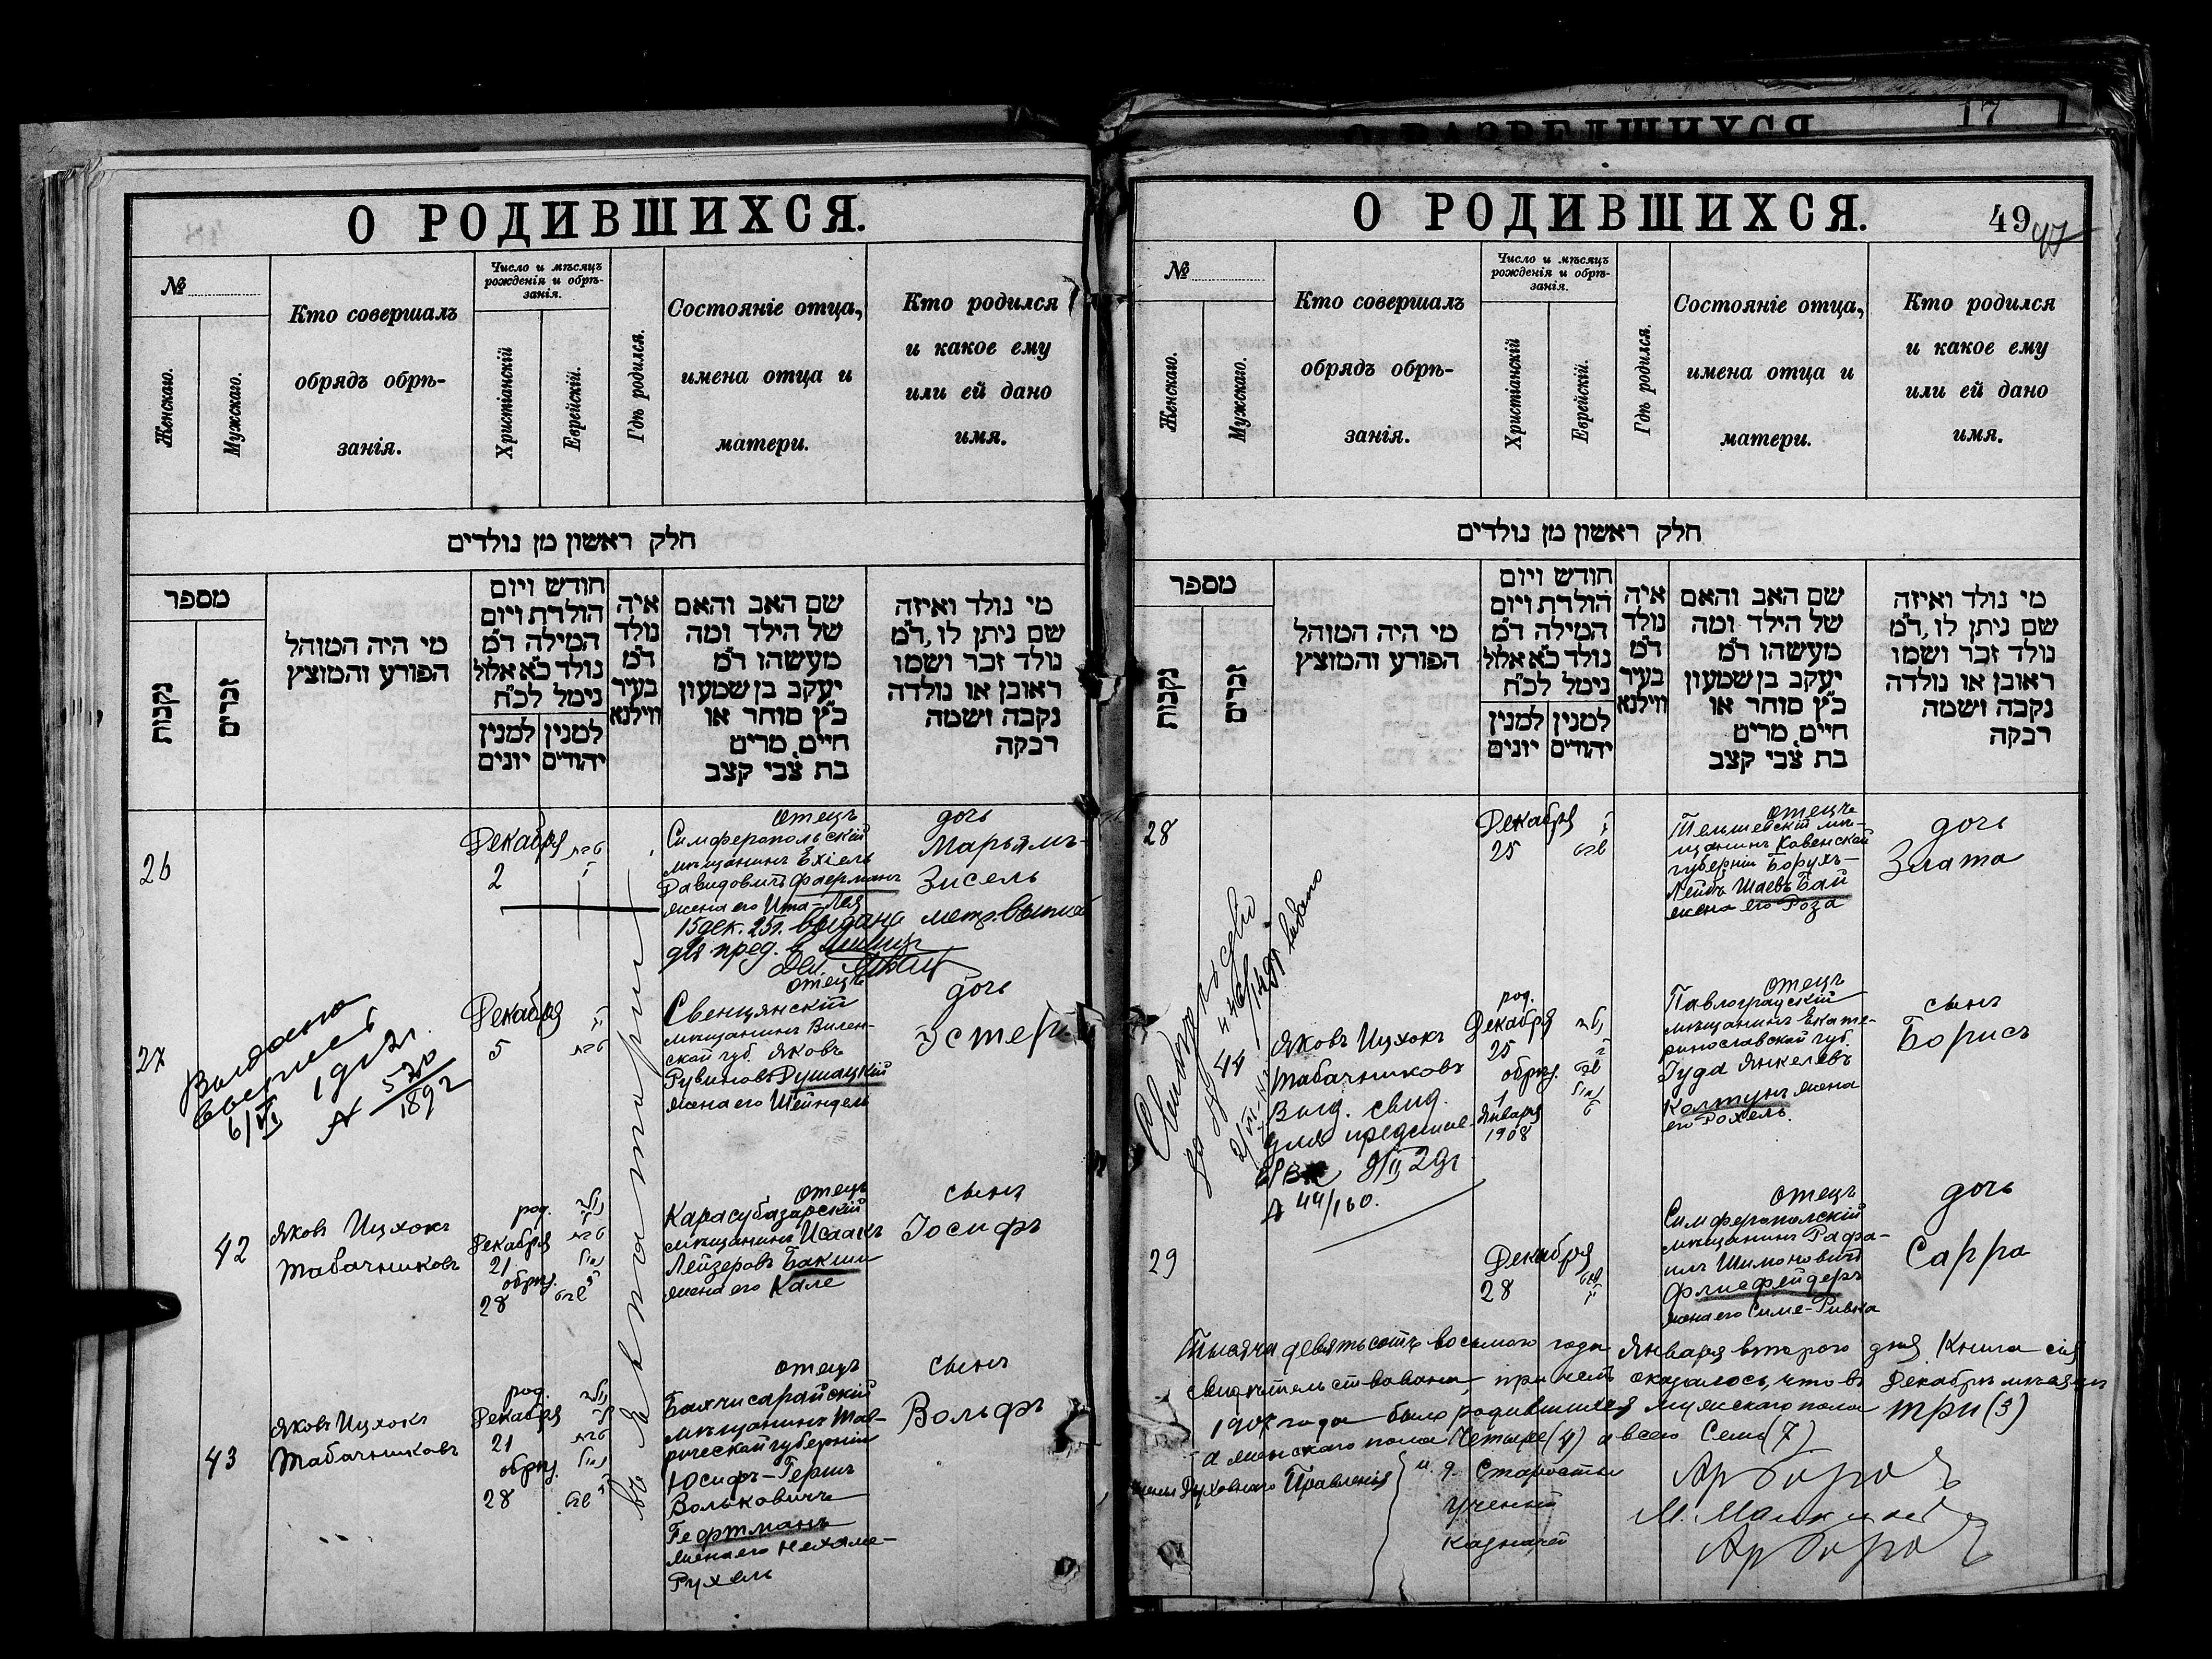 О РАЗВЕДШИХСЯ
17
О РОДИВШИХСЯ.
№
Женскаго.
Мужскаго.
Кто совершалъ
обрядъ обрѣ-
занія.
Число и мѣсяцъ
рожденія и обрѣ-
занія.
Христіанскій
Еврейскій.
Гдѣ родился.
Состояніе отца,
имена отца и
матери.
Кто родился
и какое ему
или ей дано
имя.
חלק ראשון מן נולדים
מספר
נקבות
זכרים
מי היה המוהל
הפורע והמוצץ
חודש ויום
הולדת ויום
המילה ד״מ
נולד כ״א אלול
נימל לכ״ח
למנין יונים
למנין יהודים
איה
נולד
ד״מ
בעיר
ווילנא
שם האב והאם
של הילד ומה
מעשהו ד״מ
יעקב בן שמעון
כ״ץ סוחר או
חיים, מרים
בת צבי קצב
מי נולד ואיזה
שם ניתן לו, ד״מ
נולד זכר ושמו
ראובן או נולדה
נקבה ושמה
רבקה
26
Декабря
2
טבת
отецъ
Симферопольскій
мѣщанинъ Ехіель
Давидовичъ Фаерманъ
жена его Ита-Лея
дочь
Марьямъ-
Зисель
15 дек. 25г. выдана метр. выпись
для пред. в
27
Выдана
выпись
6/VI 1912г.
№ 520/1892
Декабря
5
טבת
отецъ
Свенцянскій
мѣщанинъ Вилен-
ской губ. Яковъ
Рувиновъ Душацкій
жена его Шейндель
дочь
Эстеръ
42
Яковъ Ицхокъ
Табачниковъ
род.
Декабря
21
обрѣз.
28
נולד
טבת
נמול
отецъ
Карасубазарскій
мѣщанинъ Исаакъ
Лейзеровъ Бакши
жена его Кале
сынъ
Іосифъ
43
Яковъ Ицхокъ
Табачниковъ
род.
Декабря
21
обрѣз.
28
נולד
טבת
נמול
отецъ
Бахчисарайскій
мѣщанинъ Тав-
рической губерніи
Юсифъ-Герш
Вольковичъ
Гефтманъ
жена его Нехаме-
Рухель
сынъ
Вольфъ
въ Евпаторіи
О РОДИВШИХСЯ.
49
47
№
Женскаго.
Мужскаго.
Кто совершалъ
обрядъ обрѣ-
занія.
Число и мѣсяцъ
рожденія и обрѣ-
занія.
Христіанскій
Еврейскій.
Гдѣ родился.
Состояніе отца,
имена отца и
матери.
Кто родился
и какое ему
или ей дано
имя.
חלק ראשון מן נולדים
מספר
נקבות
זכרים
מי היה המוהל
הפורע והמוצץ
חודש ויום
הולדת ויום
המילה ד״מ
נולד כ״א אלול
נימל לכ״ח
למנין יונים
למנין יהודים
איה
נולד
ד״מ
בעיר
ווילנא
שם האב והאם
של הילד ומה
מעשהו ד״מ
יעקב בן שמעון
כ״ץ סוחר או
חיים, מרים
בת צבי קצב
מי נולד ואיזה
שם ניתן לו, ד״מ
נולד זכר ושמו
ראובן או נולדה
נקבה ושמה
רבקה
28
Декабря
25
отецъ
Тельшевскій мѣ-
щанинъ Ковенской
губерніи Борухъ-
Лейбъ Шаевъ Бай
жена его Роза
дочь
Злата
44
Яковъ Ицхокъ
Табачниковъ
род.
Декабря
25
обрѣз.
1
Января
1908
נולד
נמול
отецъ
Павлоградскій
мѣщанинъ Екате-
ринославской губ.
Іуда Янкелевъ
Колтунъ жена
его Рохель
сынъ
Борисъ
Выд. свид.
для представ.
29г
№ 44/160.
29
Декабря
28
отецъ
Симферополскій
мѣщанинъ Рафа-
илъ Шимоновичъ
Флисфейдеръ
жена его Симе-Ривка
дочь
Сарра
Тысяча девятьсотъ восьмого года Января второго дня Книга сія
свидѣтельствована, при чемъ оказалось, что въ Декабрѣ мѣсяцѣ
1907 года было родившихся мужского пола три (3)
а женскаго пола Четыре (4) а всего Семь (7)
Члены Духовнаго Правленія
и. д. Старосты
Ученый
Казначей